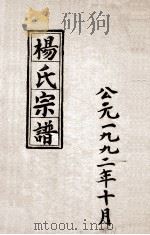 楊氏宗譜
公元一九九二年十月